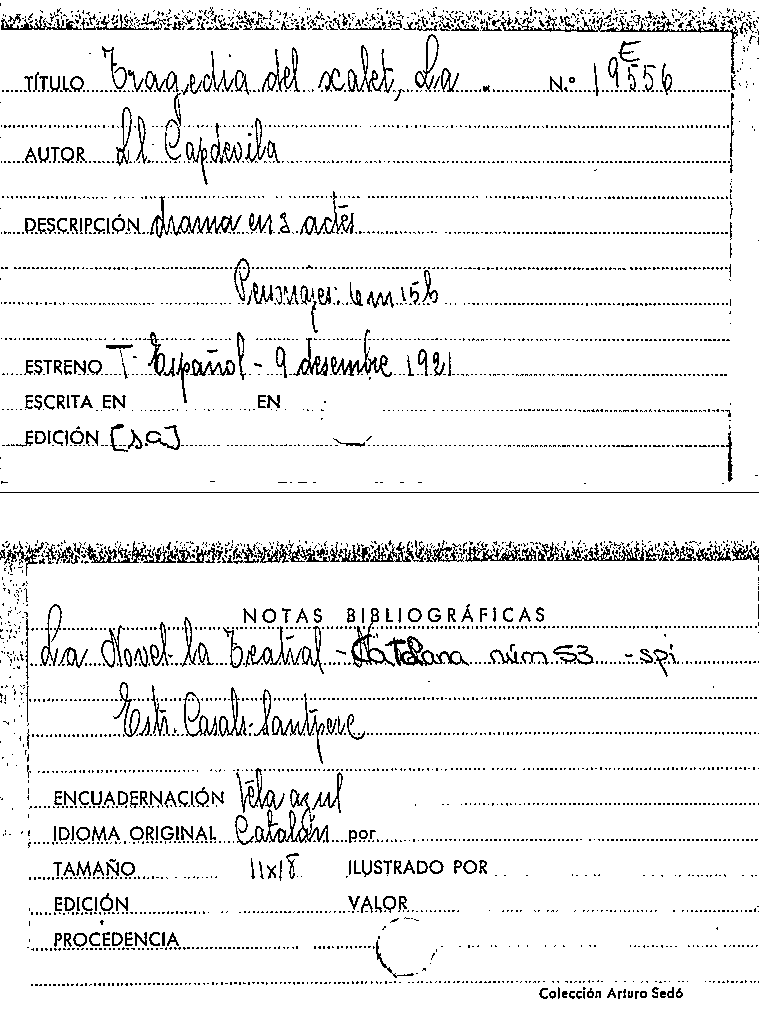 TÍTULO Tragedia del xalet, La . N.º 19556 E
AUTOR Ll. Capdevila
DESCRIPCIÓN drama en 3 actes
Personajes: 6m 15h
ESTRENO T. Español - 9 desembre 1921
ESCRITA EN EN
EDICIÓN [s.a]
NOTAS BIBLIOGRÁFICAS
La Novel·la Teatral - Catalana núm 53 - spi
Estr. Casals-Santpere
ENCUADERNACIÓN Tela azul
IDIOMA ORIGINAL Catalán por
TAMAÑO 11x18 ILUSTRADO POR
EDICIÓN VALOR
PROCEDENCIA
Colección Arturo Sedó